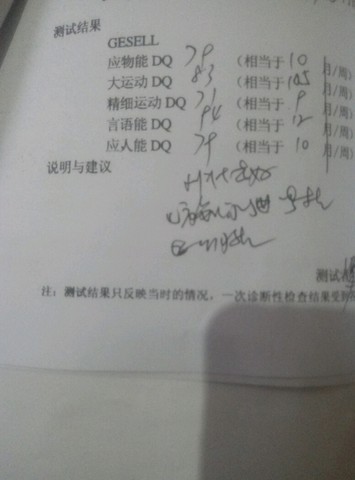 测试结果
GESELL
应物能 DQ 79 (相当于 10 月/周)
大运动 DQ 83 (相当于 10.5 月/周)
精细运动 DQ 71 (相当于 9 月/周)
言语能 DQ 94 (相当于 12 月/周)
应人能 DQ 79 (相当于 10 月/周)
说明与建议
测试
注：测试结果只反映当时的情况，一次诊断性检查结果受